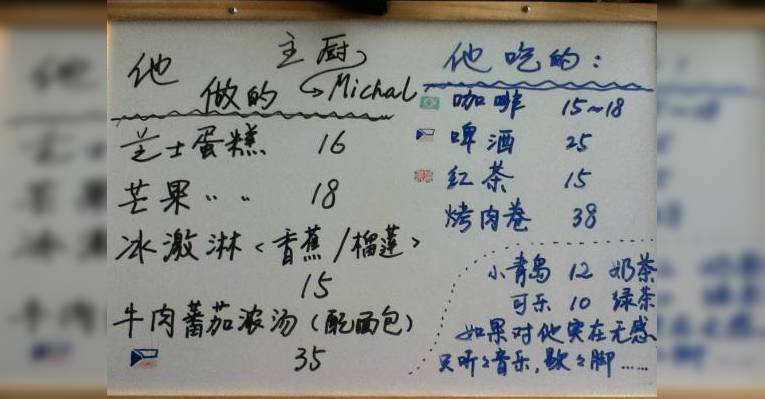 他做的
主厨
Michal
芝士蛋糕 16
芒果 〃 〃 18
冰激淋<香蕉/榴莲>
15
牛肉蕃茄浓汤(配面包)
35
他吃的:
咖啡 15~18
啤酒 25
红茶 15
烤肉卷 38
小青岛 12 奶茶
可乐 10 绿茶
如果对他实在无感
只听听音乐,歇歇脚……